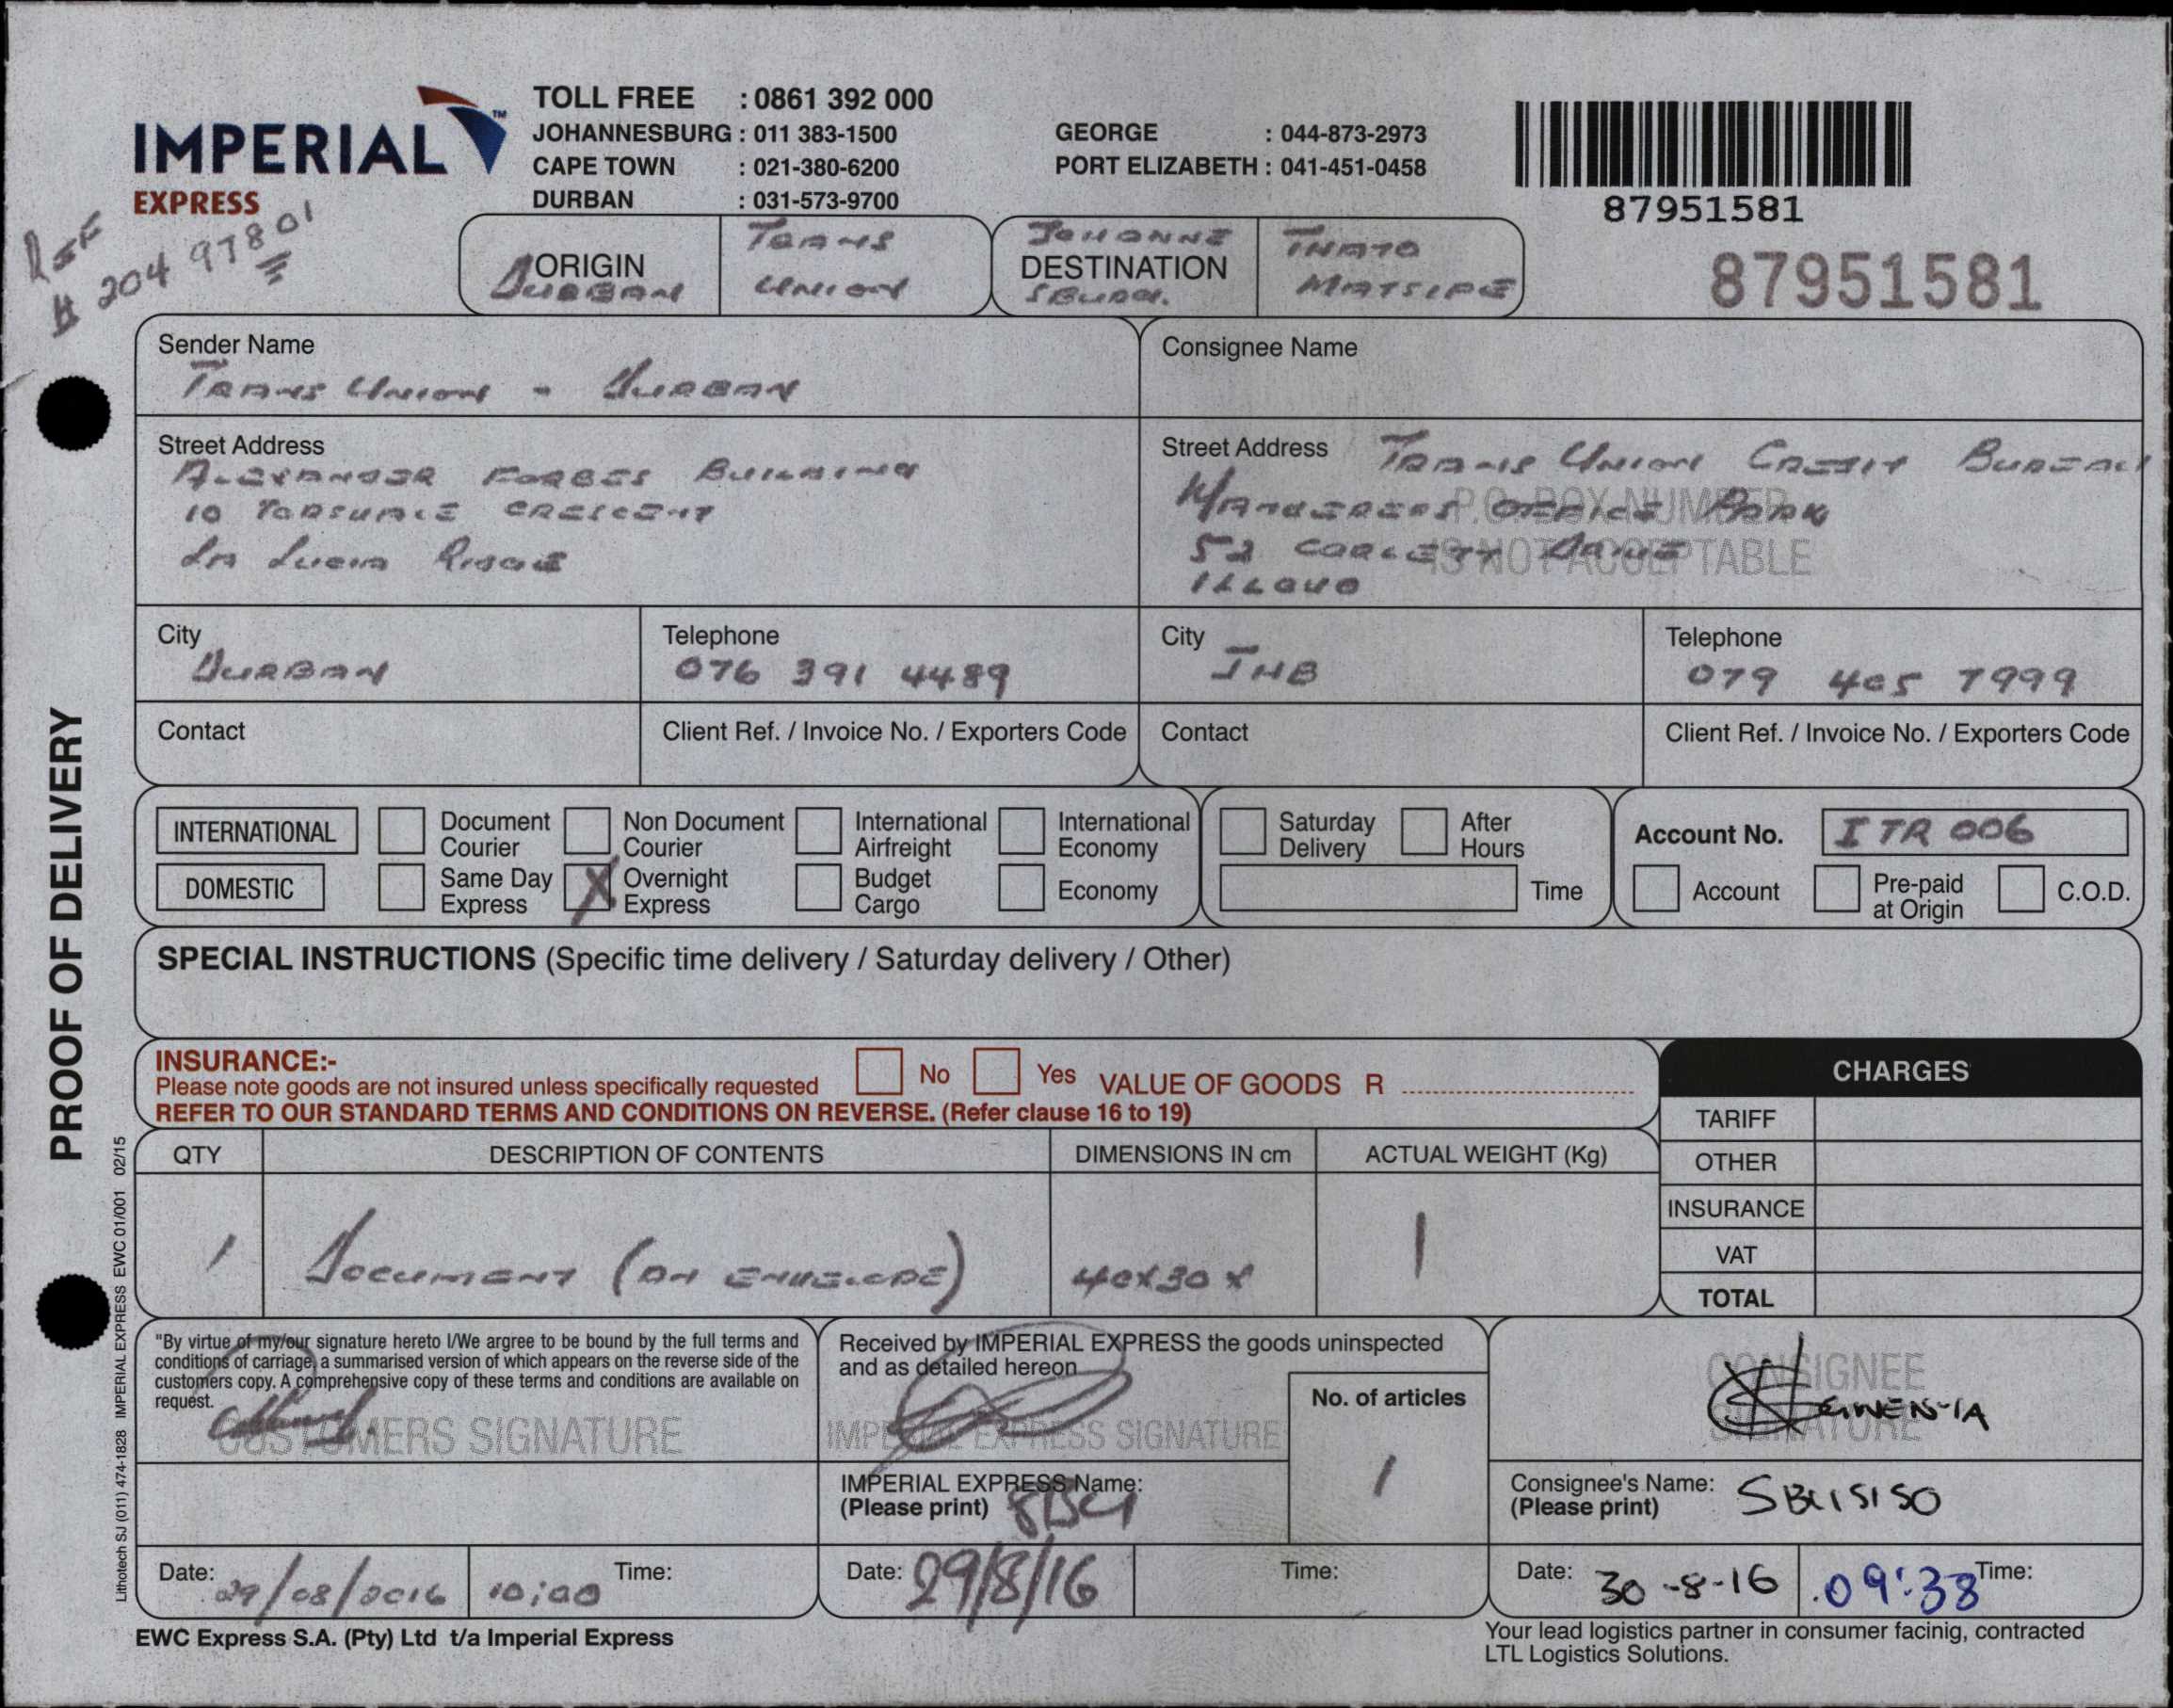 IMPERIAL™
EXPRESS
TOLL FREE : 0861 392 000
JOHANNESBURG : 011 383-1500
CAPE TOWN : 021-380-6200
DURBAN : 031-573-9700
GEORGE : 044-873-2973
PORT ELIZABETH : 041-451-0458
87951581
87951581
REF
# 20497801
ORIGIN
DURBAN
TRANS
UNION
JOHANNE
DESTINATION
SBURG.
THATO
MATSIPE
Sender Name
TRANS UNION - DURBAN
Consignee Name
Street Address
ALEXANDER FORBES BUILDING
10 TORSVALE CRESCENT
LA LUCIA RIDGE
Street Address TRANS UNION CREDIT BUREAU
WANDERERS OFFICE PARK
52 CORLETT DRIVE
ILLOVO
P.O. BOX NUMBER
IS NOT ACCEPTABLE
City
DURBAN
Telephone
076 391 4489
City
JHB
Telephone
079 405 7999
Contact
Client Ref. / Invoice No. / Exporters Code
Contact
Client Ref. / Invoice No. / Exporters Code
INTERNATIONAL
Document
Courier
Non Document
Courier
International
Airfreight
International
Economy
DOMESTIC
Same Day
Express
X
Overnight
Express
Budget
Cargo
Economy
Saturday
Delivery
After
Hours
Time
Account No. ITR 006
Account
Pre-paid
at Origin
C.O.D.
SPECIAL INSTRUCTIONS (Specific time delivery / Saturday delivery / Other)
INSURANCE:-
Please note goods are not insured unless specifically requested
No
Yes
VALUE OF GOODS R
REFER TO OUR STANDARD TERMS AND CONDITIONS ON REVERSE. (Refer clause 16 to 19)
CHARGES
TARIFF
OTHER
INSURANCE
VAT
TOTAL
QTY
DESCRIPTION OF CONTENTS
DIMENSIONS IN cm
ACTUAL WEIGHT (Kg)
1
DOCUMENT (DH ENVELOPE)
40x30x
1
"By virtue of my/our signature hereto I/We argree to be bound by the full terms and
conditions of carriage, a summarised version of which appears on the reverse side of the
customers copy. A comprehensive copy of these terms and conditions are available on
request.
CUSTOMERS SIGNATURE
Received by IMPERIAL EXPRESS the goods uninspected
and as detailed hereon
IMPERIAL EXPRESS SIGNATURE
No. of articles
1
CONSIGNEE
SIGNATURE
IMPERIAL EXPRESS Name:
(Please print)
Consignee's Name:
(Please print)
SBUSISO
Date:
29/08/2016
10:00
Time:
Date: 29/8/16
Time:
Date: 30-8-16
09:38
Time:
EWC Express S.A. (Pty) Ltd t/a Imperial Express
Your lead logistics partner in consumer facinig, contracted
LTL Logistics Solutions.
PROOF OF DELIVERY
Lithotech SJ (011) 474-1828 IMPERIAL EXPRESS EWC 01/001 02/15